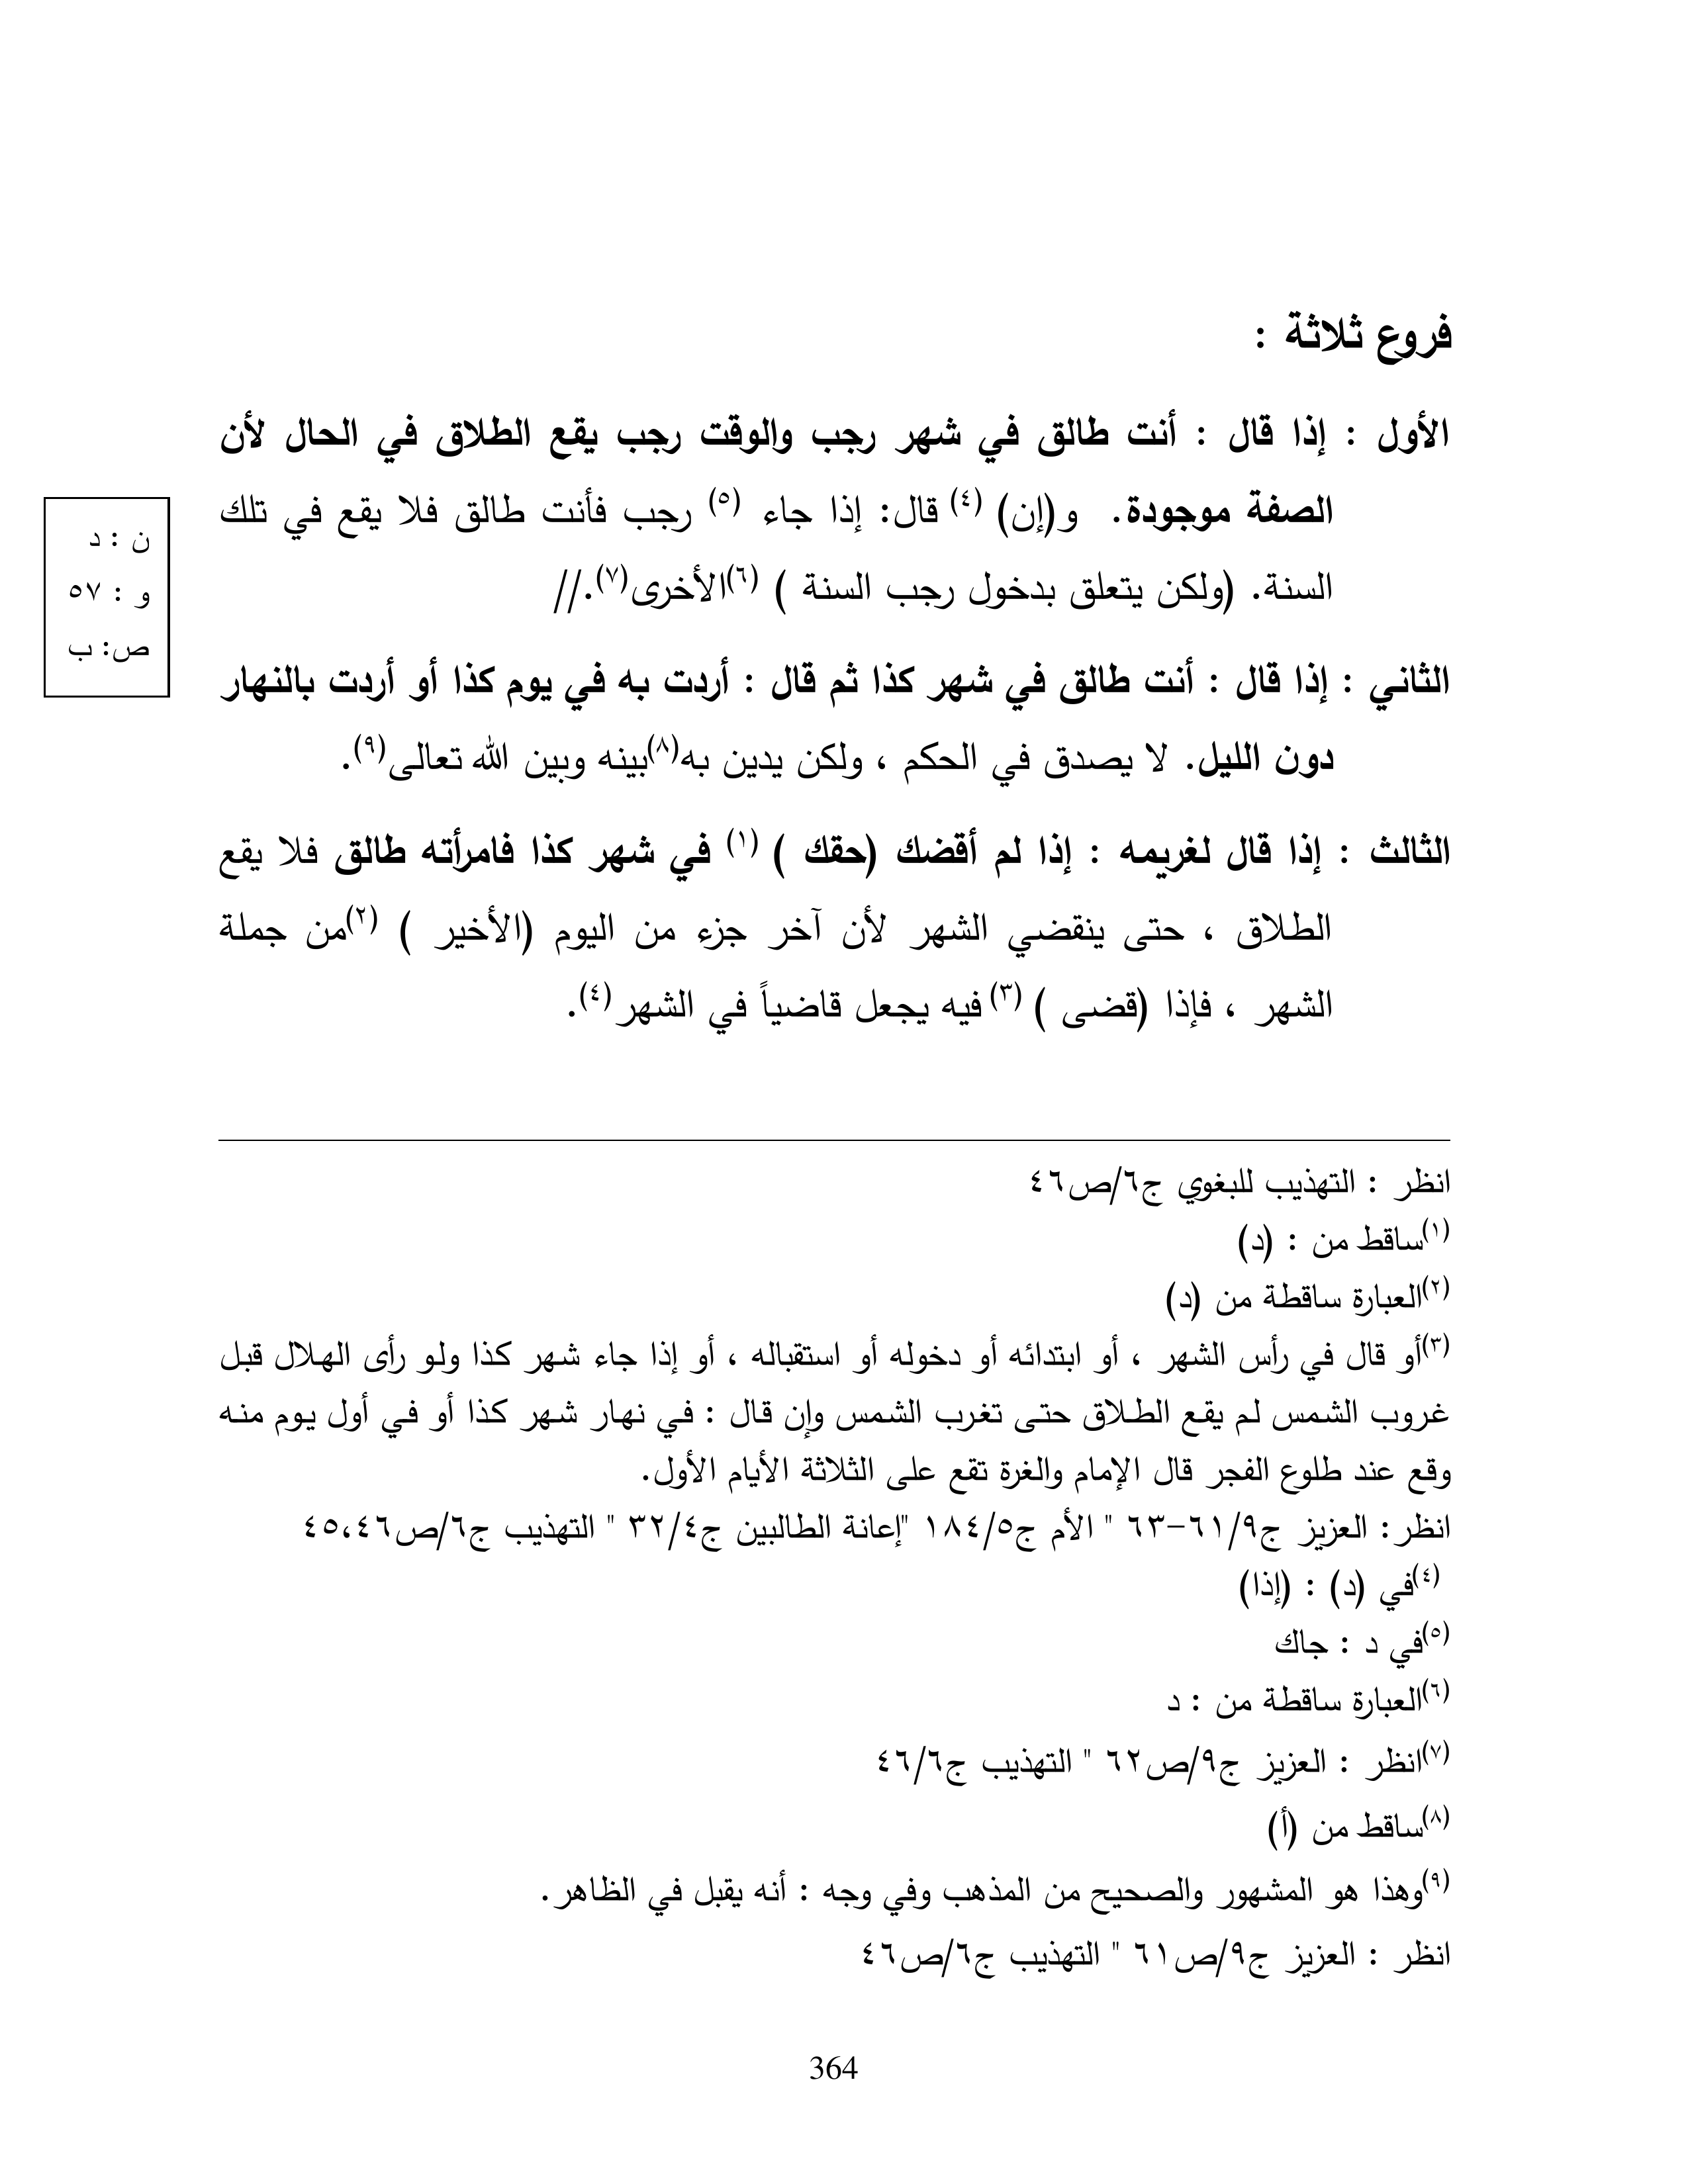 فروع ثلاثة :
الأول : إذا قال : أنت طالق في شهر رجب والوقت رجب يقع الطلاق في الحال لأن
الصفة موجودة. و(إن) (٤) قال: إذا جاء (٥) رجب فأنت طالق فلا يقع في تلك
السنة. (ولكن يتعلق بدخول رجب السنة ) (٦)الأخرى(٧).//
ن : د
و : ٥٧
ص: ب
الثاني : إذا قال : أنت طالق في شهر كذا ثم قال : أردت به في يوم كذا أو أردت بالنهار
دون الليل. لا يصدق في الحكم ، ولكن يدين به(٨)بينه وبين الله تعالى(٩).
الثالث : إذا قال لغريمه : إذا لم أقضك (حقك ) (١) في شهر كذا فامرأته طالق فلا يقع
الطلاق ، حتى ينقضي الشهر لأن آخر جزء من اليوم (الأخير ) (٢)من جملة
الشهر ، فإذا (قضى ) (٣) فيه يجعل قاضياً في الشهر(٤).
انظر : التهذيب للبغوي ج٦/ص٤٦
(١)ساقط من : (د)
(٢)العبارة ساقطة من (د)
(٣)أو قال في رأس الشهر ، أو ابتدائه أو دخوله أو استقباله ، أو إذا جاء شهر كذا ولو رأى الهلال قبل
غروب الشمس لم يقع الطلاق حتى تغرب الشمس وإن قال : في نهار شهر كذا أو في أول يوم منه
وقع عند طلوع الفجر قال الإمام والغرة تقع على الثلاثة الأيام الأول.
انظر: العزيز ج٩/٦١-٦٣ " الأم ج٥/١٨٤ "إعانة الطالبين ج٤/٣٢ " التهذيب ج٦/ص٤٥،٤٦
(٤)في (د) : (إذا)
(٥)في د : جاك
(٦)العبارة ساقطة من : د
(٧)انظر : العزيز ج٩/ص٦٢ " التهذيب ج٦/٤٦
(٨)ساقط من (أ)
(٩)وهذا هو المشهور والصحيح من المذهب وفي وجه : أنه يقبل في الظاهر.
انظر : العزيز ج٩/ص٦١ " التهذيب ج٦/ص٤٦
364